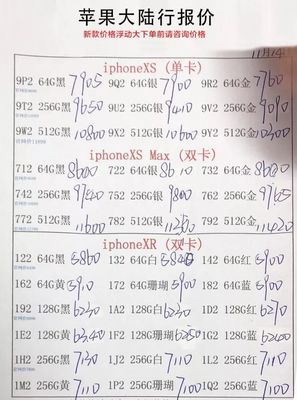 苹果大陆行报价
新款价格浮动大下单前请咨询价格
11月24日
iphoneXS (单卡)
9P2 64G黑 7905 9Q2 64G银 7900 9R2 64G金 7760
9T2 256G黑 9650 9U2 256G银 9V2 256G金
9W2 512G黑 10800 9X2 512G银 10600 9Y2 512G金 10300
iphoneXS Max (双卡)
712 64G黑 8600 722 64G银 8610 732 64G金 8600
742 256G黑 752 256G银 9800 762 256G金
772 512G黑 11600 782 512G银 792 512G金 11420
iphoneXR (双卡)
122 64G黑 5860 132 64G白 5840 142 64G红 5900
162 64G黄 5910 172 64G珊瑚 5900 182 64G蓝 5900
192 128G黑 6230 1A2 128G白 6230 1D2 128G红 6270
1E2 128G黄 6340 1F2 128G珊瑚 6250 1G2 128G蓝 6200
1H2 256G黑 7130 1J2 256G白 7110 1L2 256G红 7110
1M2 256G黄 7110 1P2 256G珊瑚 7100 1Q2 256G蓝 7100